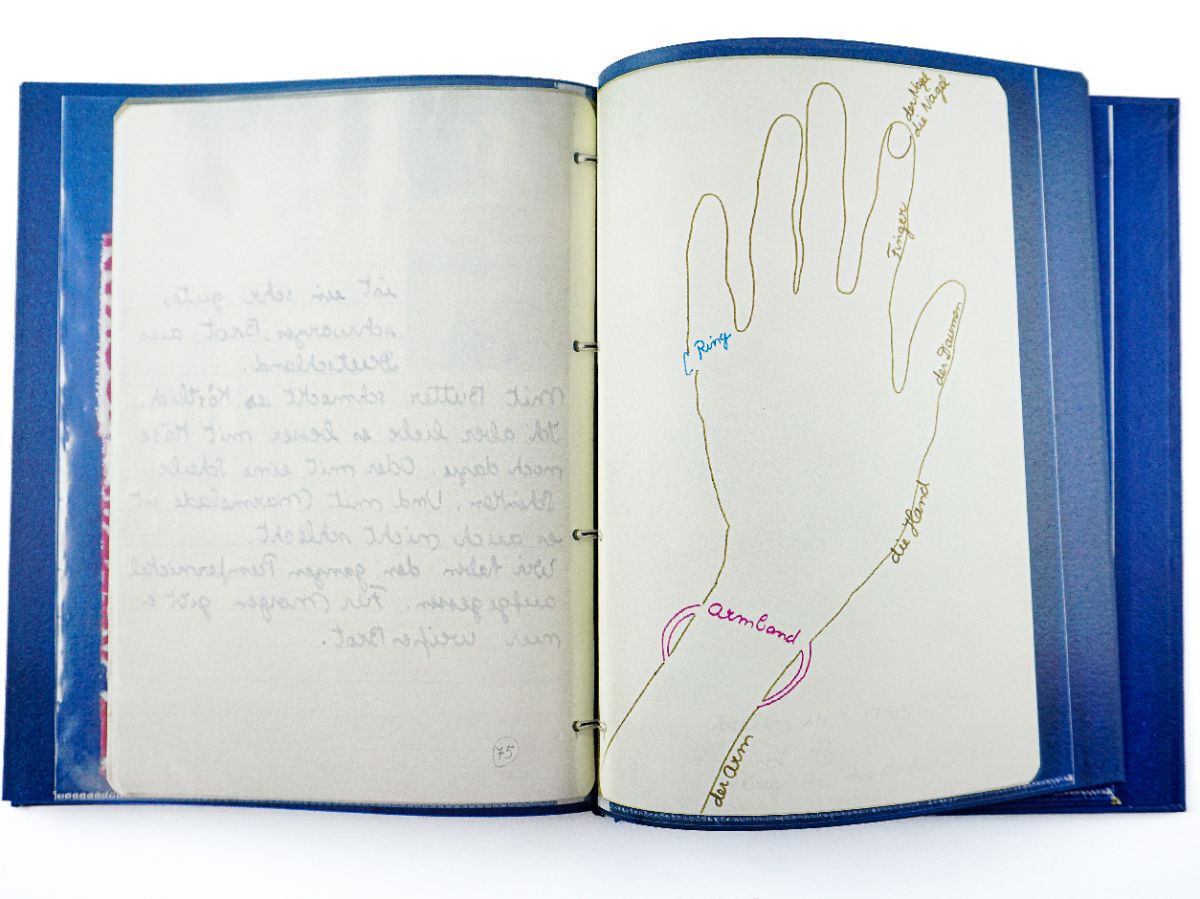 ist ein sehr gutes
schwarzes Brot aus
Deutschland.
Mit Butter schmeckt es Köstlich.
Ich aber liebe es besser mit Käse
noch dazu. Oder mit eine Scheibe
Schinken. Und mit Marmelade ist
es auch nicht schlecht.
Wir haben den ganzen Pumpernickel
aufgegessen. Für Morgen gibt es
nur weißes Brot.
75
der Nagel
die Nägel
Finger
der Daumen
Ring
die Hand
armband
der Arm